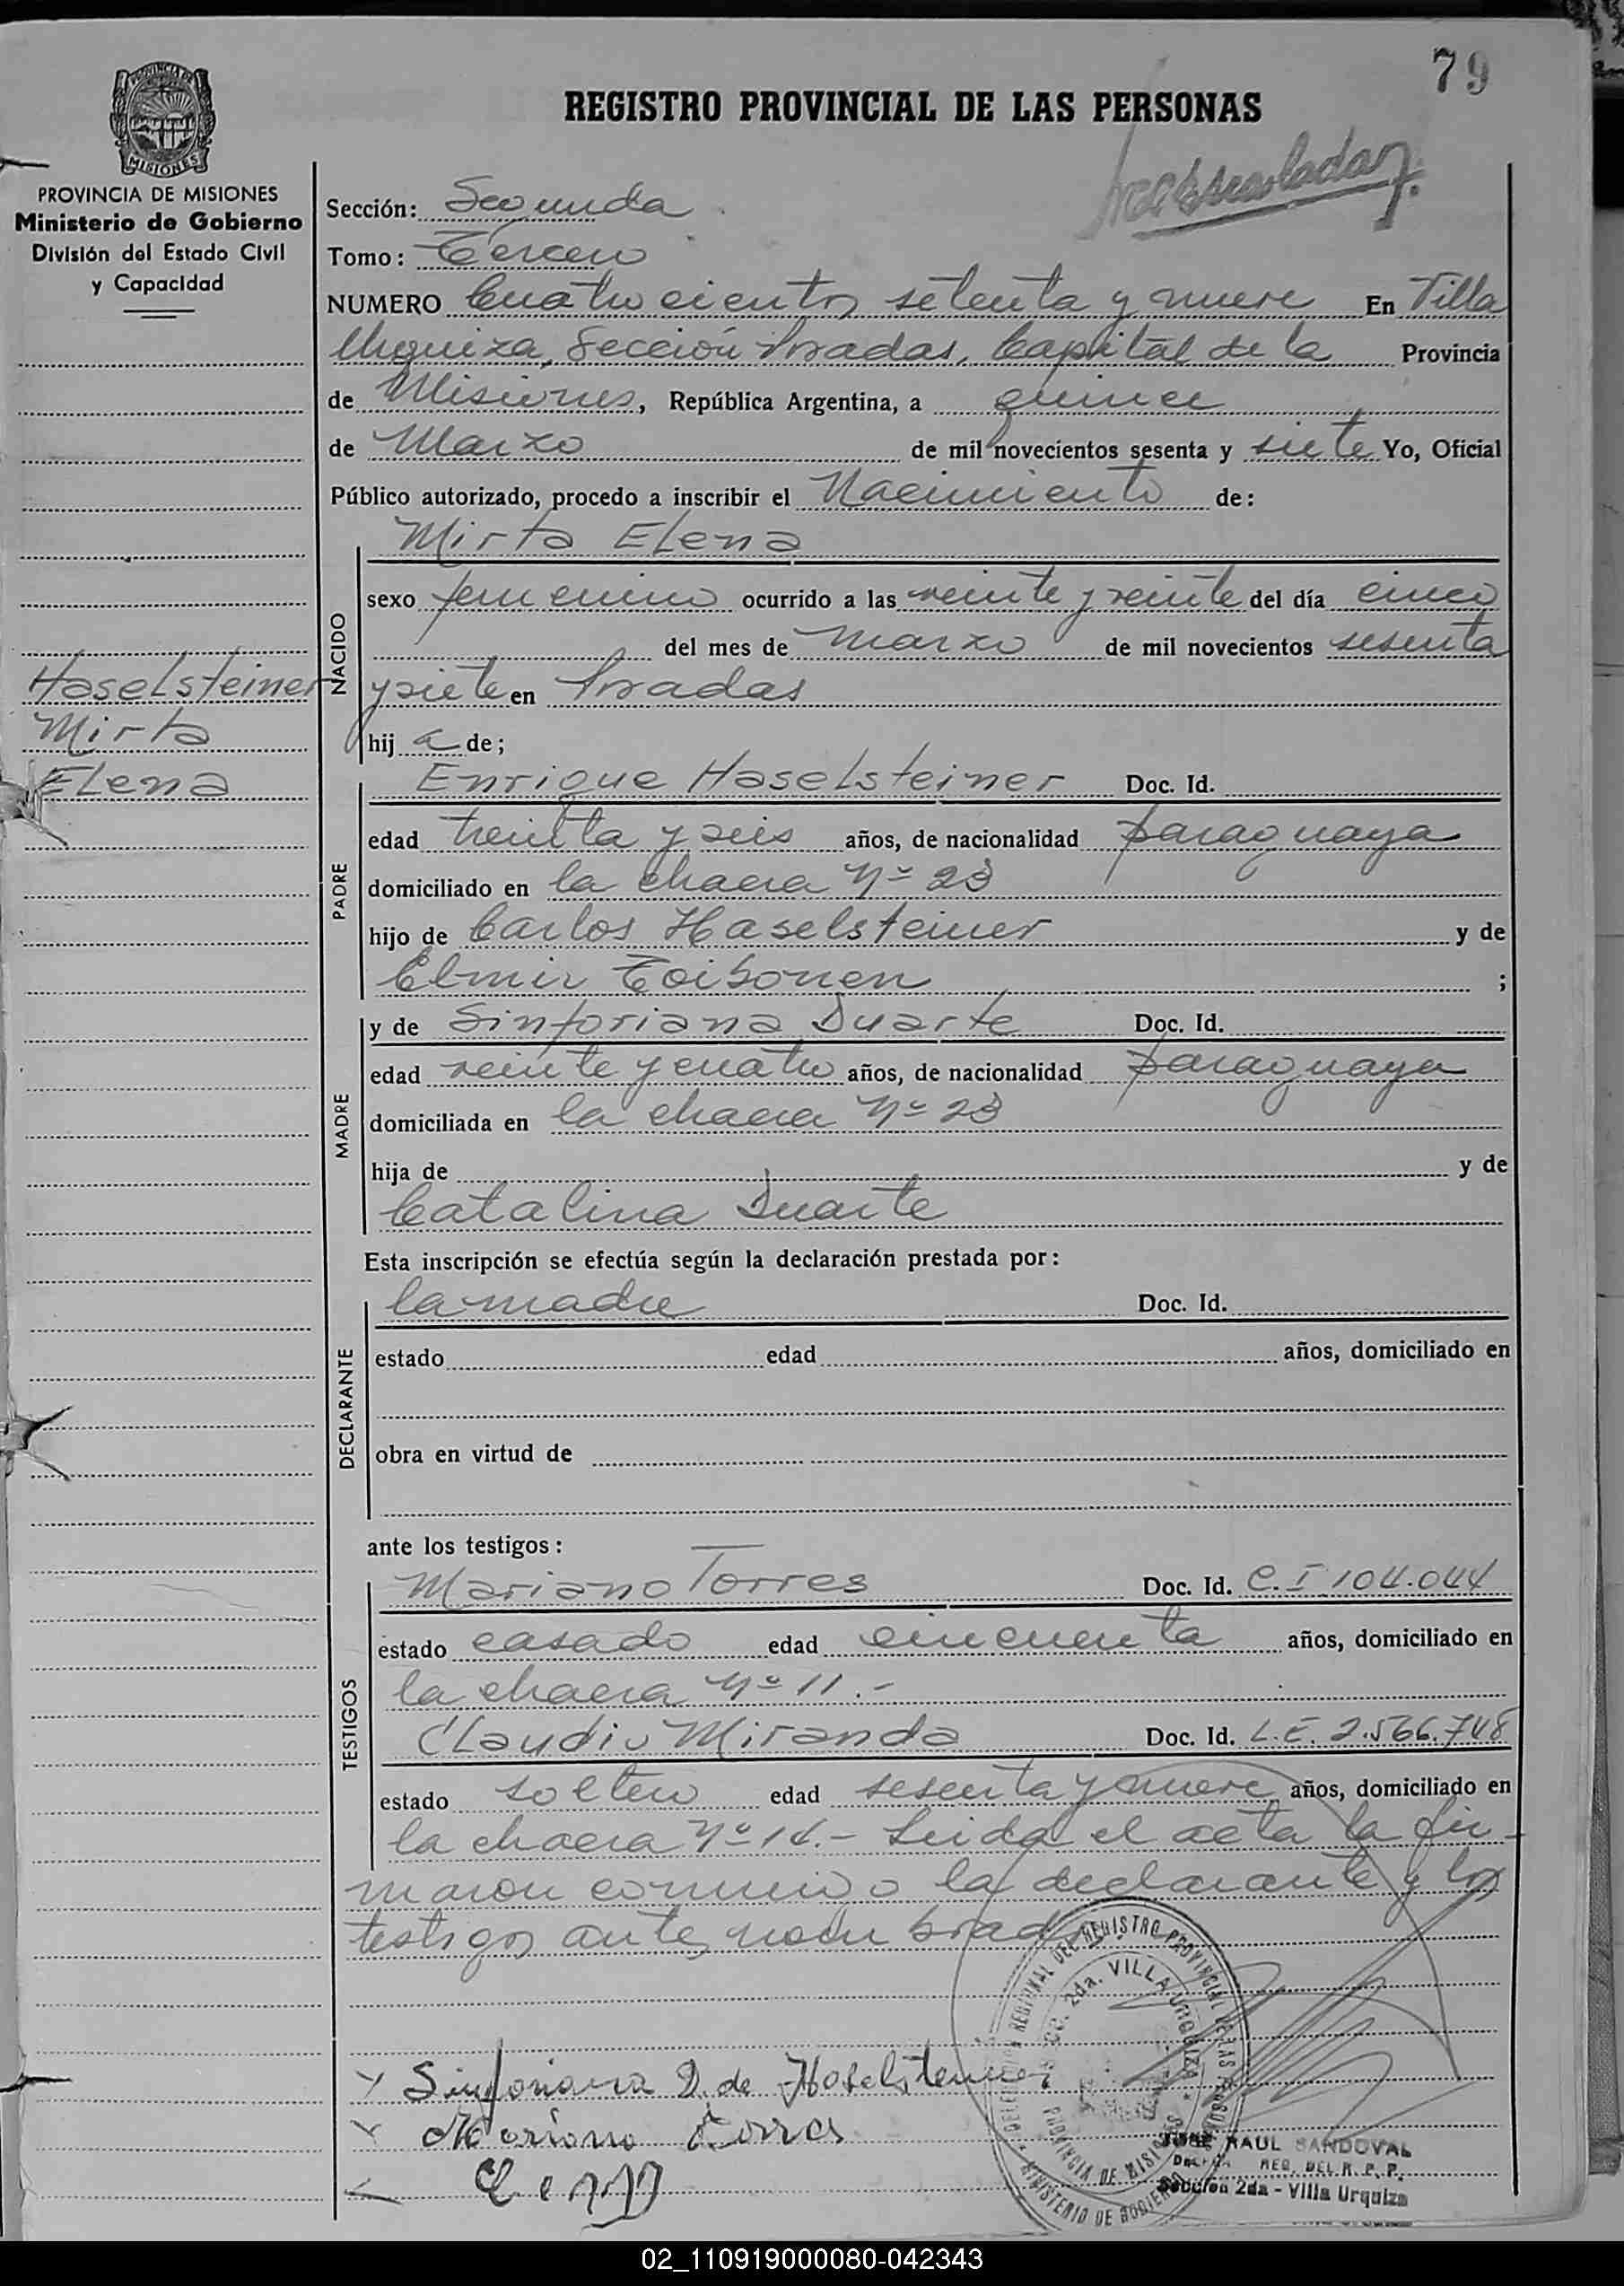 79
REGISTRO PROVINCIAL DE LAS PERSONAS
PROVINCIA DE MISIONES
PROVINCIA DE MISIONES
Ministerio de Gobierno
División del Estado Civil
y Capacidad
Sección: Segunda
Tomo: Tercero
NUMERO Cuatrocientos setenta y nueve En Villa
Urquiza, Sección Posadas, Capital de la Provincia
de Misiones, República Argentina, a quince
de Marzo de mil novecientos sesenta y siete Yo, Oficial
Público autorizado, procedo a inscribir el Nacimiento de:
Mirta Elena
NACIDO
sexo femenino ocurrido a las veinte y veinte del día cinco
del mes de marzo de mil novecientos sesenta
y siete en Posadas
hij a de;
Haselsteiner
Mirta
Elena
PADRE
Enrique Haselsteiner Doc. Id.
edad treinta y seis años, de nacionalidad paraguaya
domiciliado en la chacra Nº 23
hijo de Carlos Haselsteiner y de
Elmir Toibonen ;
MADRE
y de Sinforiana Duarte Doc. Id.
edad veinte y cuatro años, de nacionalidad paraguaya
domiciliada en la chacra Nº 23
hija de y de
Catalina Duarte
Esta inscripción se efectúa según la declaración prestada por:
DECLARANTE
la madre Doc. Id.
estado edad años, domiciliado en
obra en virtud de
ante los testigos:
TESTIGOS
Mariano Torres Doc. Id. C.I 104.044
estado casado edad cincuenta años, domiciliado en
la chacra Nº 11.-
Claudio Miranda Doc. Id. L.E. 2.566.748
estado soltero edad sesenta y nueve años, domiciliado en
la chacra Nº 14.- Leida el acta la fir-
maron conmigo la declarante y los
testigos ante nombrados
Sinforiana D. de Haselsteiner
Mariano Torres
DELEGACION REGIONAL DEL REGISTRO PROVINCIAL DE LAS PERSONAS
SECC. 2da. VILLA URQUIZA
PROVINCIA DE MISIONES
MINISTERIO DE GOBIERNO
JOSE RAUL SANDOVAL
REG. DEL R. P. P.
Sección 2da - Villa Urquiza
02_110919000080-042343